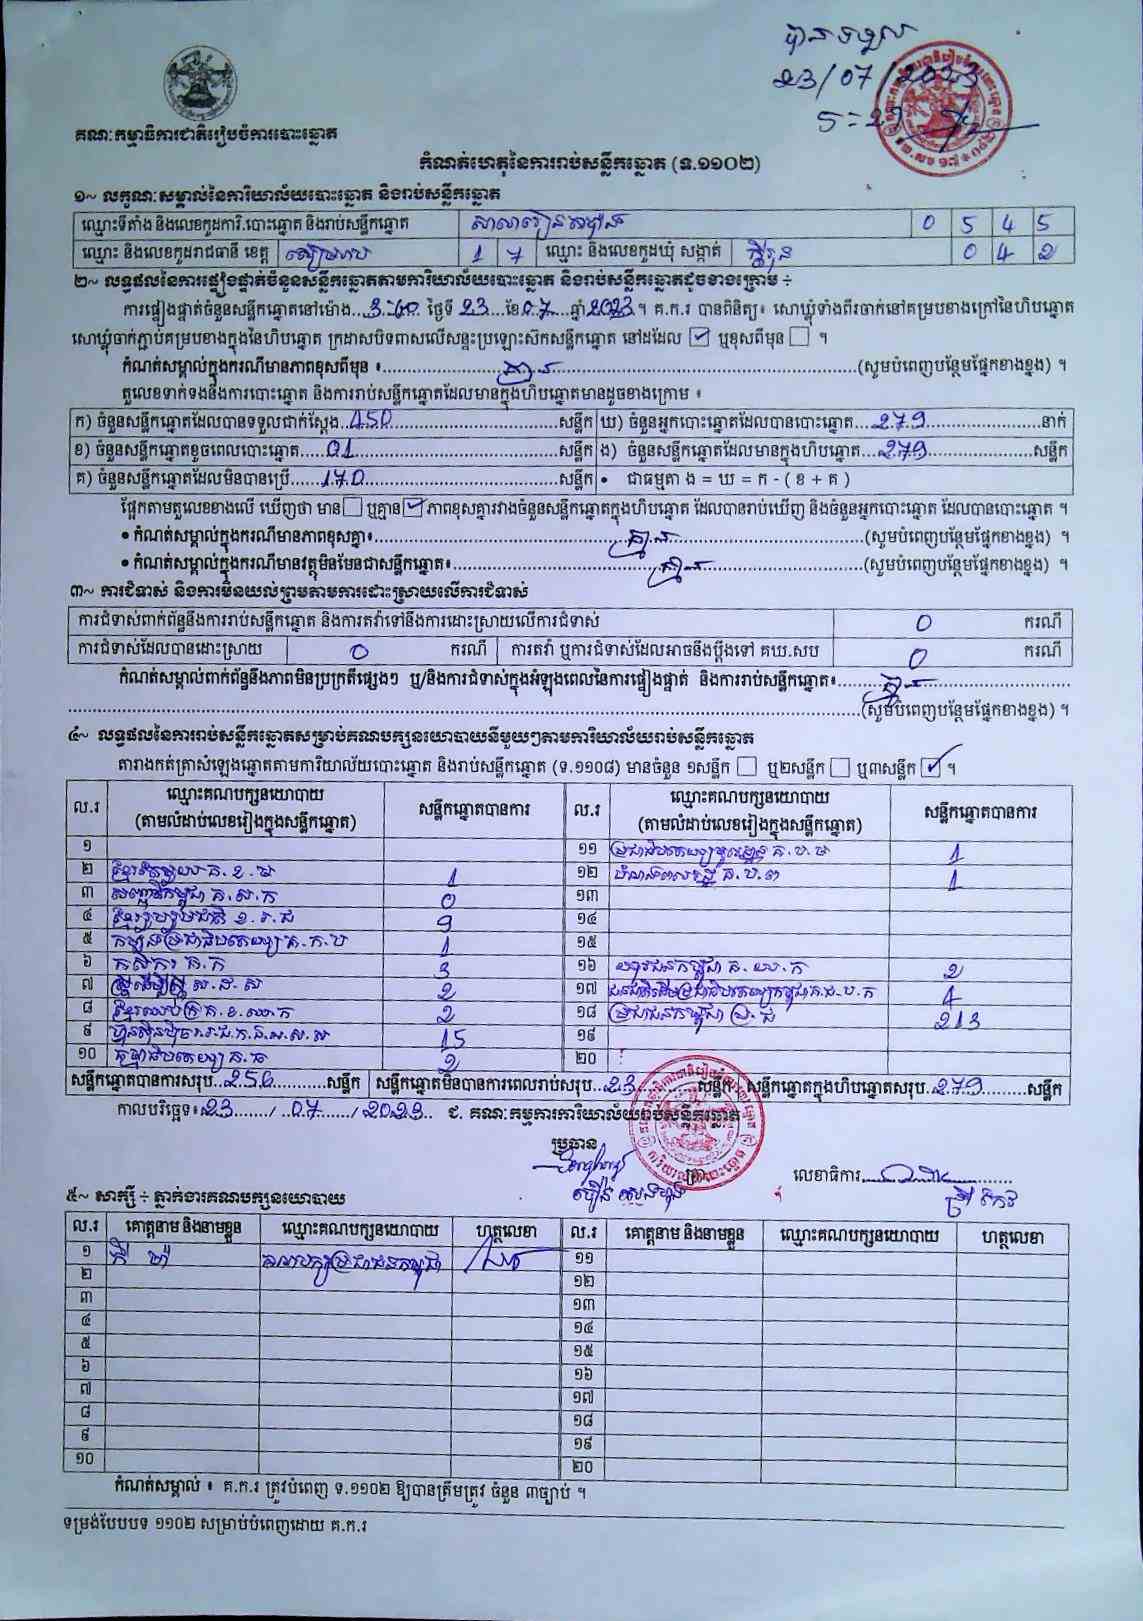 បានទទួល
23/07/2023
5:27
គណៈកម្មាធិការជាតិរៀបចំការបោះឆ្នោត
កំណត់ហេតុនៃការរាប់សន្លឹកឆ្នោត (ទ.១១០២)
១~ លក្ខណៈសម្គាល់នៃការិយាល័យបោះឆ្នោត និងរាប់សន្លឹកឆ្នោត
ឈ្មោះទីតាំង និងលេខកូដការិ.បោះឆ្នោត និងរាប់សន្លឹកឆ្នោត សាលារៀន 0 5 4 5
ឈ្មោះ និងលេខកូដរាជធានី ខេត្ត សៀមរាប 1 7 ឈ្មោះ និងលេខកូដឃុំ សង្កាត់ 0 4 2
២~ លទ្ធផលនៃការផ្ទៀងផ្ទាត់ចំនួនសន្លឹកឆ្នោតតាមការិយាល័យបោះឆ្នោត និងរាប់សន្លឹកឆ្នោតដូចខាងក្រោម ÷
ការផ្ទៀងផ្ទាត់ចំនួនសន្លឹកឆ្នោតនៅម៉ោង 3:40 ថ្ងៃទី 23 ខែ 07 ឆ្នាំ 2023 ។ គ.ក.រ បានពិនិត្យ៖ សោឃ្លុំទាំងពីរចាក់នៅគម្របខាងក្រៅនៃហិបឆ្នោត
សោឃ្លុំចាក់ភ្ជាប់គម្របខាងក្នុងនៃហិបឆ្នោត ក្រដាសបិទពាសលើសន្ទះប្រឡោះស៊កសន្លឹកឆ្នោត នៅដដែល ☑ ឬខុសពីមុន ☐ ។
កំណត់សម្គាល់ក្នុងករណីមានភាពខុសពីមុន ៖ គ្មាន (សូមបំពេញបន្ថែមផ្នែកខាងខ្នង) ។
តួលេខទាក់ទងនឹងការបោះឆ្នោត និងការរាប់សន្លឹកឆ្នោតដែលមានក្នុងហិបឆ្នោតមានដូចខាងក្រោម ៖
ក) ចំនួនសន្លឹកឆ្នោតដែលបានទទួលជាក់ស្តែង 450 សន្លឹក ឃ) ចំនួនអ្នកបោះឆ្នោតដែលបានបោះឆ្នោត 279 នាក់
ខ) ចំនួនសន្លឹកឆ្នោតខូចពេលបោះឆ្នោត 01 សន្លឹក ង) ចំនួនសន្លឹកឆ្នោតដែលមានក្នុងហិបឆ្នោត 279 សន្លឹក
គ) ចំនួនសន្លឹកឆ្នោតដែលមិនបានប្រើ 170 សន្លឹក • ជាធម្មតា ង = ឃ = ក - ( ខ + គ )
ផ្អែកតាមតួលេខខាងលើ ឃើញថា មាន ☐ ឬគ្មាន ☑ ភាពខុសគ្នារវាងចំនួនសន្លឹកឆ្នោតក្នុងហិបឆ្នោត ដែលបានរាប់ឃើញ និងចំនួនអ្នកបោះឆ្នោត ដែលបានបោះឆ្នោត ។
• កំណត់សម្គាល់ក្នុងករណីមានភាពខុសគ្នា៖ គ្មាន (សូមបំពេញបន្ថែមផ្នែកខាងខ្នង) ។
• កំណត់សម្គាល់ក្នុងករណីមានវត្ថុមិនមែនជាសន្លឹកឆ្នោត៖ គ្មាន (សូមបំពេញបន្ថែមផ្នែកខាងខ្នង) ។
៣~ ការជំទាស់ និងការមិនយល់ព្រមតាមការដោះស្រាយលើការជំទាស់
ការជំទាស់ពាក់ព័ន្ធនឹងការរាប់សន្លឹកឆ្នោត និងការតវ៉ាទៅនឹងការដោះស្រាយលើការជំទាស់ 0 ករណី
ការជំទាស់ដែលបានដោះស្រាយ 0 ករណី ការតវ៉ា ឬការជំទាស់ដែលអាចនឹងប្តឹងទៅ គឃ.សប 0 ករណី
កំណត់សម្គាល់ពាក់ព័ន្ធនឹងភាពមិនប្រក្រតីផ្សេងៗ ឬ/និងការជំទាស់ក្នុងអំឡុងពេលនៃការផ្ទៀងផ្ទាត់ និងការរាប់សន្លឹកឆ្នោត៖ គ្មាន
(សូមបំពេញបន្ថែមផ្នែកខាងខ្នង) ។
៤~ លទ្ធផលនៃការរាប់សន្លឹកឆ្នោតសម្រាប់គណបក្សនយោបាយនីមួយៗតាមការិយាល័យរាប់សន្លឹកឆ្នោត
តារាងកត់ត្រាសំឡេងឆ្នោតតាមការិយាល័យបោះឆ្នោត និងរាប់សន្លឹកឆ្នោត (ទ.១១០៨) មានចំនួន ១សន្លឹក ☐ ឬ២សន្លឹក ☐ ឬ៣សន្លឹក ☑ ។
ល.រ ឈ្មោះគណបក្សនយោបាយ (តាមលំដាប់លេខរៀងក្នុងសន្លឹកឆ្នោត) សន្លឹកឆ្នោតបានការ ល.រ ឈ្មោះគណបក្សនយោបាយ (តាមលំដាប់លេខរៀងក្នុងសន្លឹកឆ្នោត) សន្លឹកឆ្នោតបានការ
១ ១១ ប្រជាធិបតេយ្យមូលដ្ឋាន គ.ប.ម 1
២ ខ្មែរតែមួយ គ.ខ.ម 1 ១២ 1
៣ សញ្ជាតិកម្ពុជា គ.ស.ក 0 ១៣
៤ ខ្មែររួបរួមជាតិ ខ.រ.ជ 9 ១៤
៥ កម្ពុជា 1 ១៥
៦ កសិករ គ.ក 3 ១៦ យុវជនកម្ពុជា គ.យ.ក 2
៧ ស្ត្រីដើម្បីស្ត្រី ស.ដ.ស 2 ១៧ ជនជាតិដើមប្រជាធិបតេយ្យកម្ពុជា គ.ជ.ប.ក 4
៨ ខ្មែរឈប់ក្រ គ.ខ.ឈ.ក 2 ១៨ ប្រជាជនកម្ពុជា ប្រ.ជ 213
៩ ហ្វ៊ុនស៊ិនប៉ិច 15 ១៩
១០ ធម្មាធិបតេយ្យ គ.ធ 2 ២០
សន្លឹកឆ្នោតបានការសរុប 256 សន្លឹក សន្លឹកឆ្នោតមិនបានការពេលរាប់សរុប 23 សន្លឹក សន្លឹកឆ្នោតក្នុងហិបឆ្នោតសរុប 279 សន្លឹក
កាលបរិច្ឆេទ៖ 23 / 07 / 2023 ជ. គណៈកម្មការការិយាល័យរាប់សន្លឹកឆ្នោត
ប្រធាន
លេខាធិការ
៥~ សាក្សី ÷ ភ្នាក់ងារគណបក្សនយោបាយ
ល.រ គោត្តនាម និងនាមខ្លួន ឈ្មោះគណបក្សនយោបាយ ហត្ថលេខា ល.រ គោត្តនាម និងនាមខ្លួន ឈ្មោះគណបក្សនយោបាយ ហត្ថលេខា
១ គណបក្សប្រជាជនកម្ពុជា ១១
២ ១២
៣ ១៣
៤ ១៤
៥ ១៥
៦ ១៦
៧ ១៧
៨ ១៨
៩ ១៩
១០ ២០
កំណត់សម្គាល់ ៖ គ.ក.រ ត្រូវបំពេញ ទ.១១០២ ឱ្យបានត្រឹមត្រូវ ចំនួន ៣ច្បាប់ ។
ទម្រង់បែបបទ ១១០២ សម្រាប់បំពេញដោយ គ.ក.រ